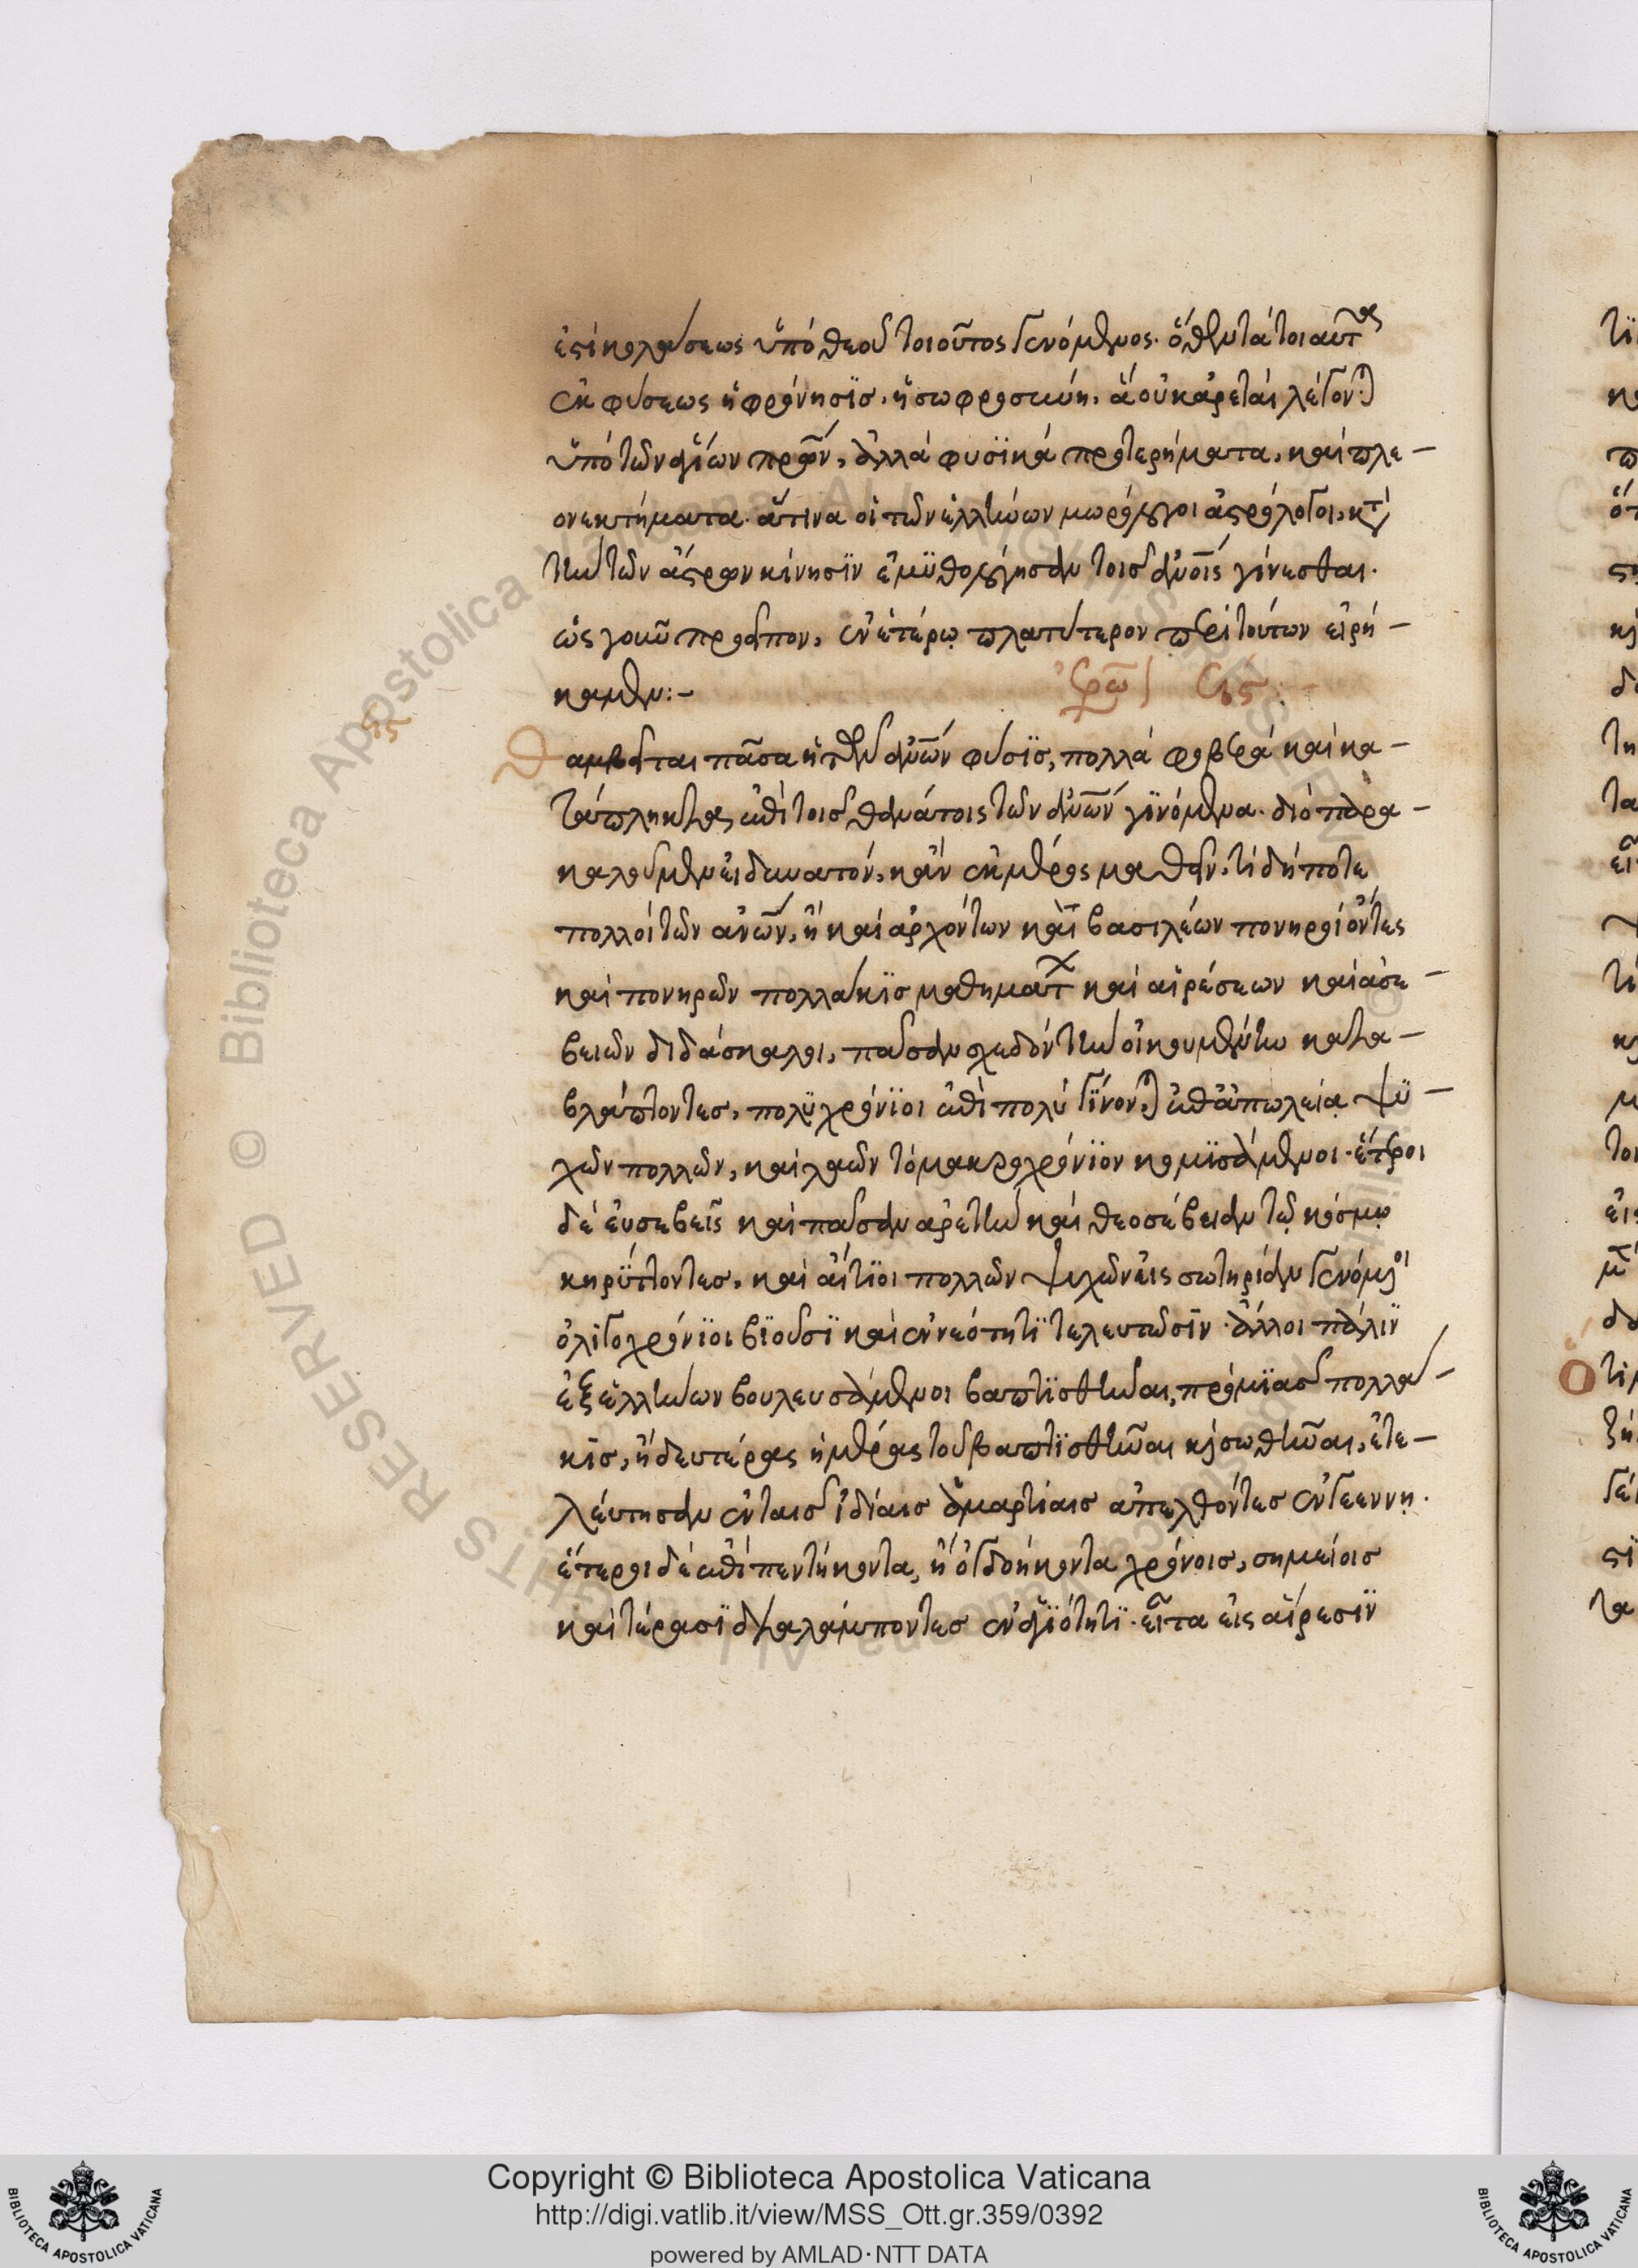 ἐστὶ κολάσεως ὑπὸ θεοῦ τοιοῦτος γενόμενος. ὅθεν τὰ τοιαῦτ
ἐκ φύσεως ἡ φρόνησϊς, ἡ σωφροσύνη, ἃ οὐκ ἀρεταὶ λέγον
ὑπὸ τῶν ἁγίων πρῶν, ἀλλὰ φυσϊκὰ προτερήματα, καὶ πλε-
ονεκτήματα. ἅτινα οἱ τῶν ἑλλήνων μωρόλογοι ἀστρολόγοι, κτ
τὴν τῶν ἄστρων κίνησϊν ἐμϋθολόγησαν τοῖς ἀνοῖς γίνεσθαι.
ὡς γοῦν προεῖπον, ἐν ἑτέρῳ πλατύτερον περὶ τούτων εἰρή-
καμεν:-
ἐρώ
Θαμβεῖται πᾶσα ἡ τῶν ἀνῶν φύσϊς, πολλὰ φοβερὰ καὶ κα-
τάπληκτα ἐπὶ τοῖς θανάτοις τῶν ἀνῶν γϊνόμενα. διὸ παρα-
καλοῦμεν εἰ δυνατόν, κἂν ἐκ μέρος μαθεῖν, τί δήποτε
πολλοὶ τῶν ἀνῶν, ἢ καὶ ἀρχόντων καὶ βασιλέων πονηροὶ ὄντες
καὶ πονηρῶν πολλάκϊς μαθημάτ καὶ αἱρέσεων καὶ ἀσε-
βειῶν διδάσκαλοι, πᾶσαν σχεδὸν τὴν οἰκουμένην κατα-
βλάπτοντες, πολϋχρόνϊοι ἐπὶ πολὺ γΐνον ἐπ ἀπωλείᾳ ψϋ-
χῶν πολλῶν, καὶ λαῶν τὸ μακροχρόνϊον κομϊσάμενοι. ἕτεροι
δὲ εὐσεβεῖς καὶ πᾶσαν ἀρετὴν καὶ θεοσέβειαν τῷ κόσμῳ
κηρϋττοντες, καὶ αἴτϊοι πολλῶν ψυχῶν εἰς σωτηρίαν γενόμοι
ὀλιγοχρόνϊοι βϊοῦσϊ καὶ ἐν νεότητϊ τελευτῶσϊν. ἄλλοι πάλιν
ἐξ ἑλλήνων βουλευσάμενοι βαπτϊσθῆναι, πρὸ μϊᾶς πολλά-
κϊς, ἢ δευτέρας ἡμέρας τοῦ βαπτϊσθῆναι κὶ σωθῆναι, ἐτε-
λεύτησαν ἐν ταῖς ἰδίαις ἁμαρτίαις ἀπελθόντες ἐν γεεννῃ.
ἕτεροι δὲ ἐπὶ πεντήκοντα, ἢ ὀγδοήκοντα χρόνοις, σημείοις
καὶ τέρασϊ διαλάμποντες ἐν ἁγϊότητϊ. εἶτα εἰς αἵρεσϊν
Copyright © Biblioteca Apostolica Vaticana
http://digi.vatlib.it/view/MSS_Ott.gr.359/0392
powered by AMLAD·NTT DATA
BIBLIOTECA APOSTOLICA VATICANA
BIBLIOTECA APOSTOLICA VATICANA